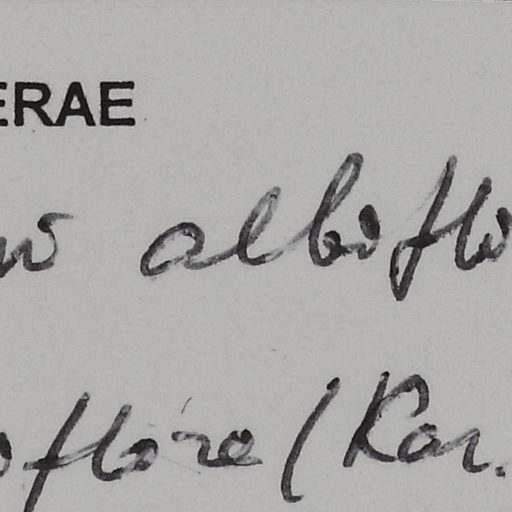 ERAE
albiflo
oflora (Kar.